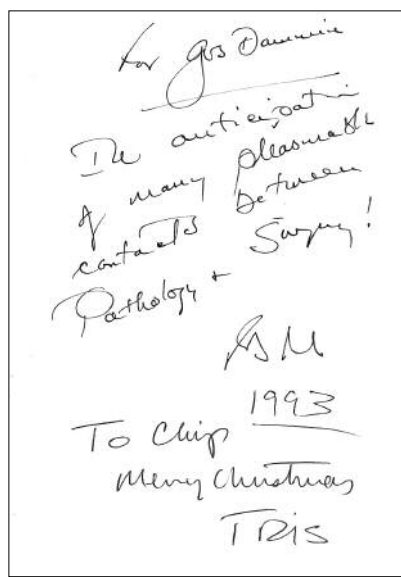 For Gus Dammin
In anticipation
of many pleasurable
contacts between
Pathology + Surgery!
1993
To Chip
Merry Christmas
TRIS